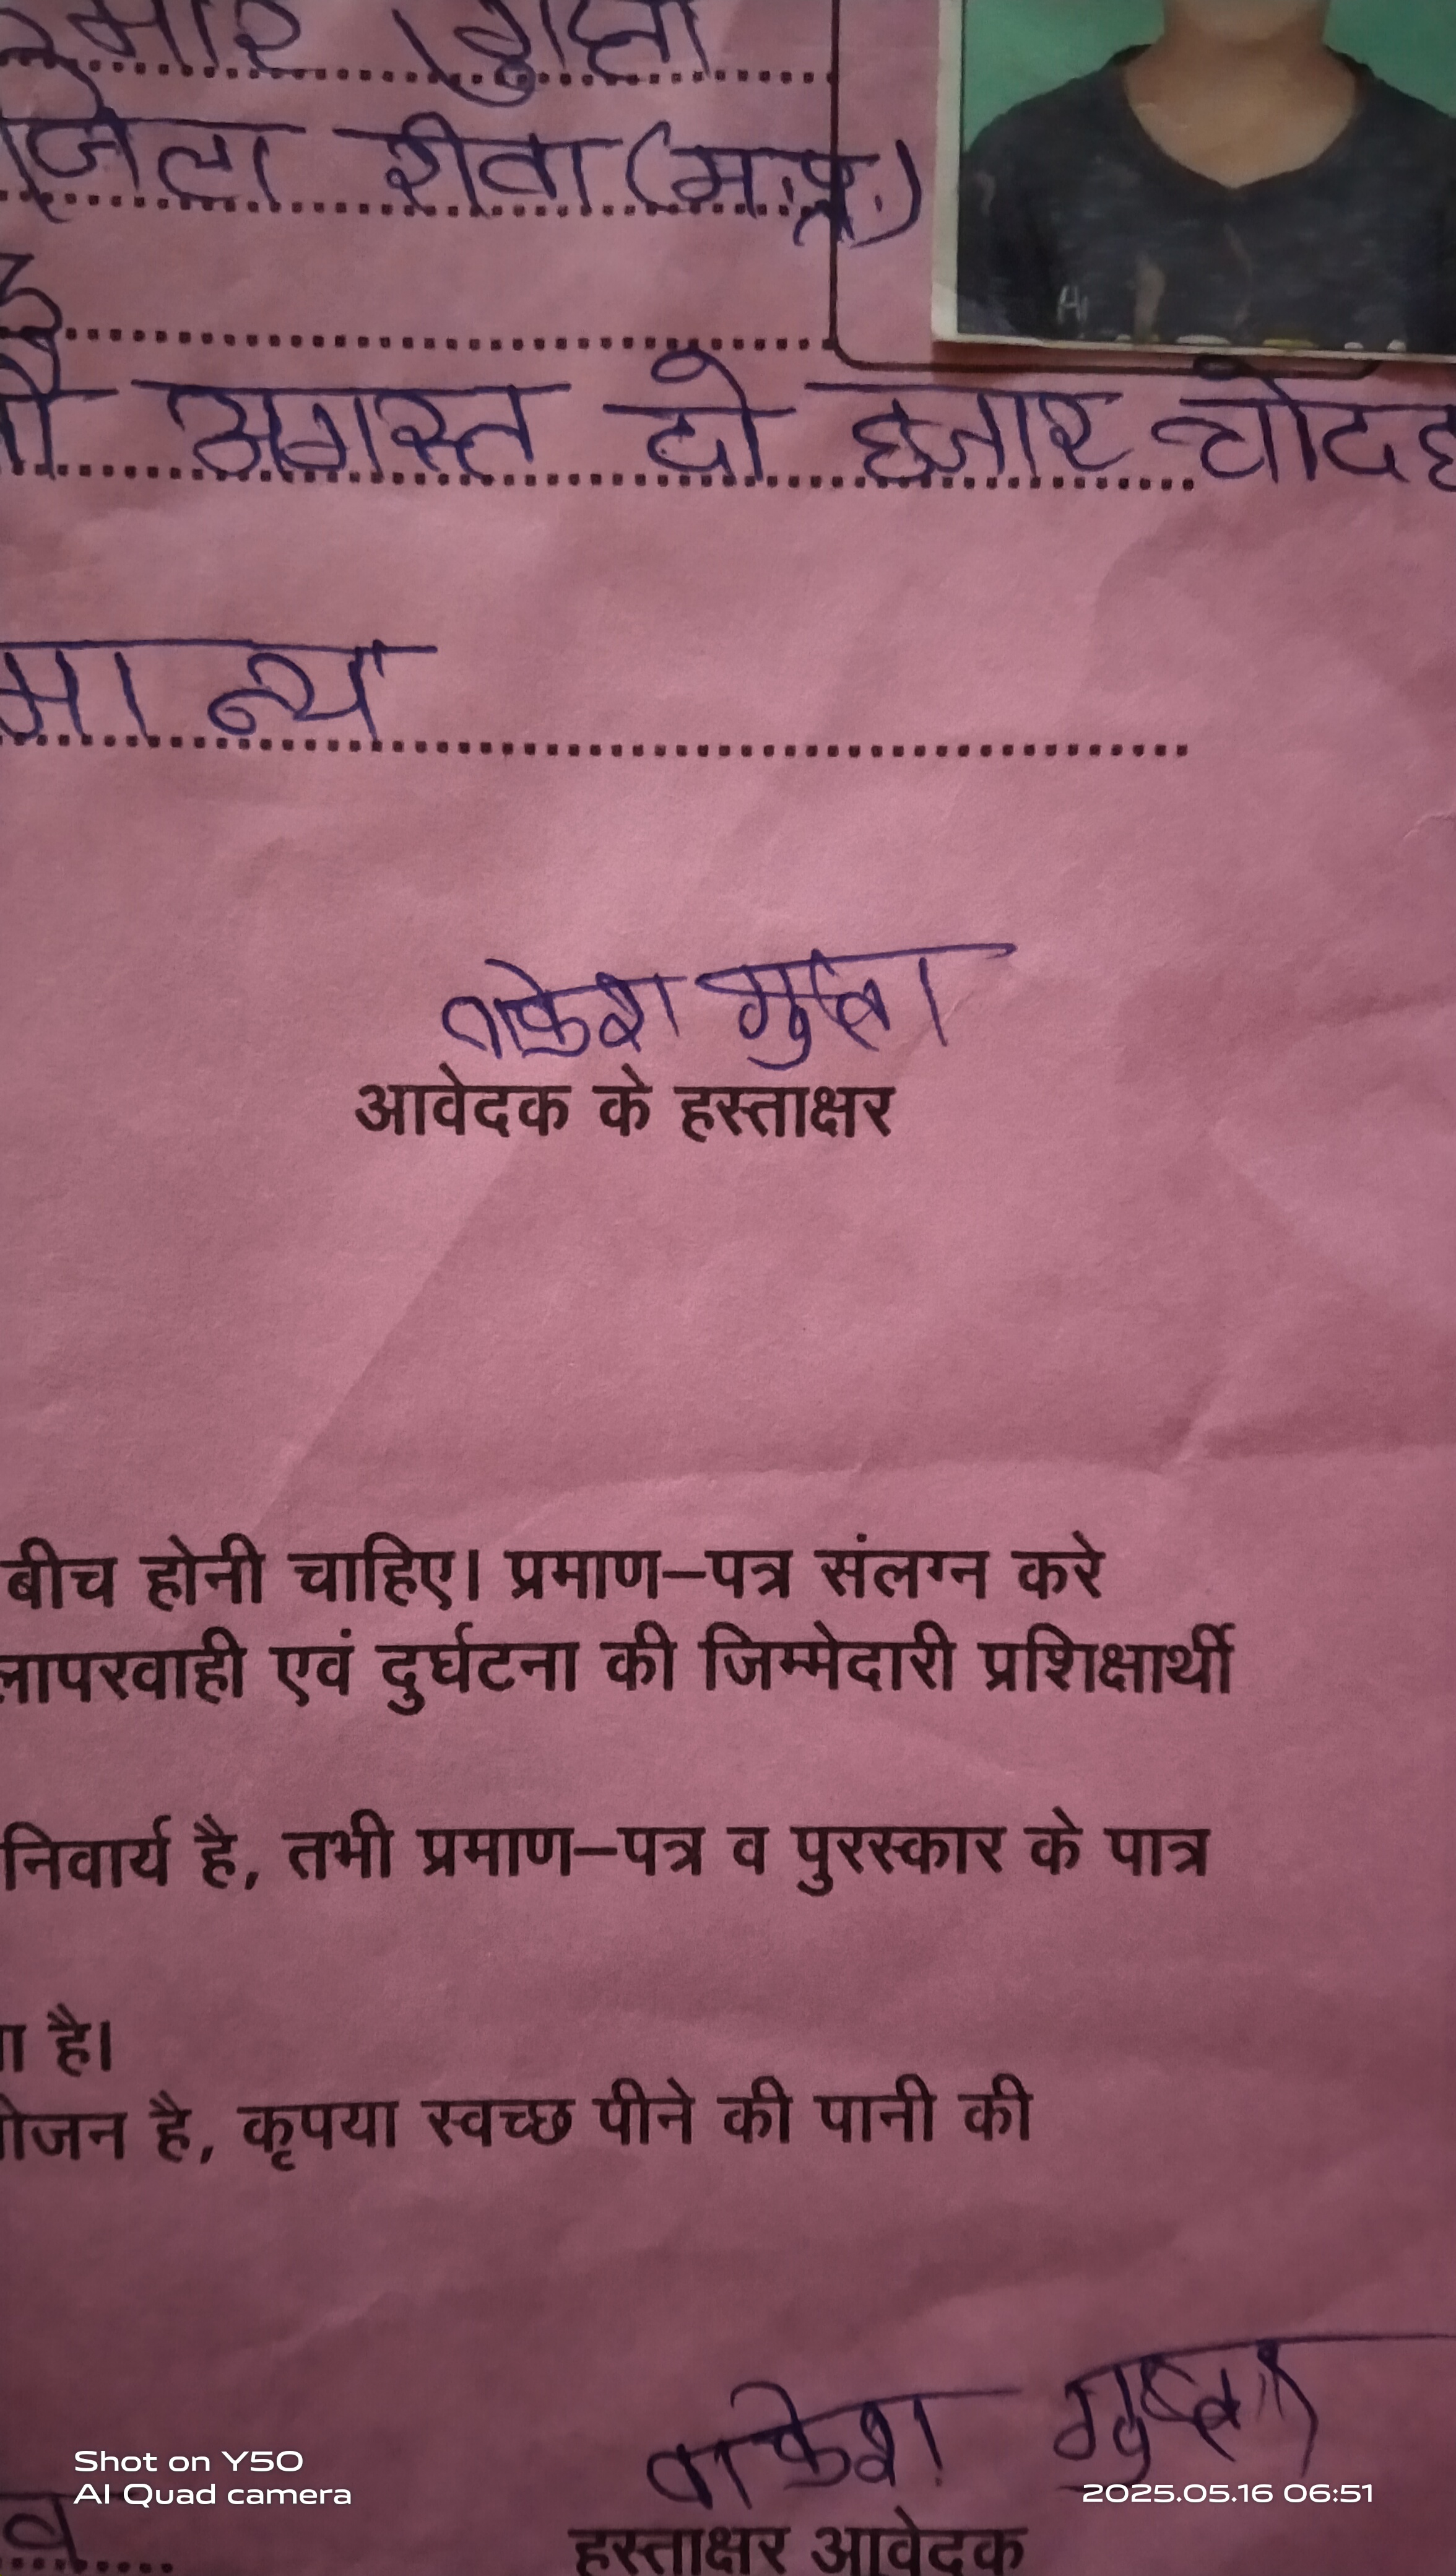 कुमार गुप्ता
जिला रीवा (म.प्र.)
अगस्त दो हजार चौदह
मान्य
गुप्ता
आवेदक के हस्ताक्षर
बीच होनी चाहिए। प्रमाण–पत्र संलग्न करे
लापरवाही एवं दुर्घटना की जिम्मेदारी प्रशिक्षार्थी
निवार्य है, तभी प्रमाण–पत्र व पुरस्कार के पात्र
ा है।
ोजन है, कृपया स्वच्छ पीने की पानी की
गुप्ता
Shot on Y50
AI Quad camera
2025.05.16 06:51
हस्ताक्षर आवेदक